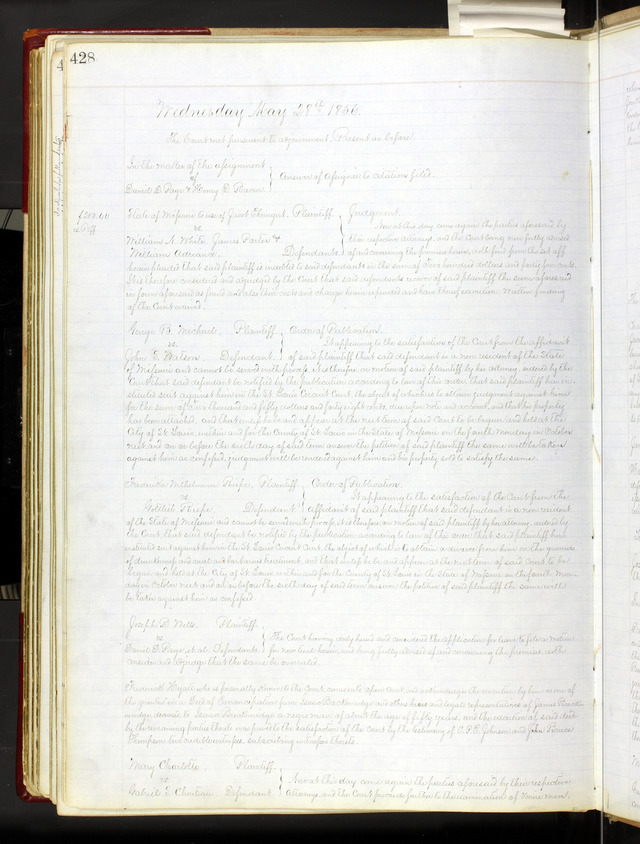 428
Wednesday May 28th 1856.
The Court met pursuant to adjournment. Present as before.
In the matter of the assignment
of
Daniel D. Page & Henry D. Bacon
answer of assignee to citations filed.
State of Missouri to use of Plaintiff
vs.
William N. White, James &
William Defendants
Judgment.
Now at this day come again the parties aforesaid by
their respective attorneys, and the Court being now fully advised
of and concerning the premises herein, doth find from the set off
herein pleaded that said plaintiff is indebted to said defendants in the sum of Two hundred dollars and forty five cents.
It is therefore considered and adjudged by the Court that said defendants recover of said plaintiff the sum aforesaid
in form aforesaid as found and also their costs and charges herein expended and have thereof execution.
of the Court waived.
George B. Michael. Plaintiff
vs.
John E. Watson. Defendant.
Order of Publication.
It appearing to the satisfaction of the Court from the affidavit
of said plaintiff that said defendant is a non resident of the State
of Missouri and cannot be served with process. It is therefore, on motion of said plaintiff by his attorney, ordered by the
Court that said defendant be notified by the publication according to law of this order, that said plaintiff has in-
stituted suit against him in the St. Louis Circuit Court, the object of which is to obtain judgment against him
for the sum of Five thousand and fifty dollars and forty eight cents, due upon note and account, and that his property
has been attached, and that unless he be and appear at the next term of said Court to be begun and held at the
City of St. Louis, within and for the County of St. Louis in the State of Missouri on the fourth Monday in October
next and on or before the sixth day of said term answer the petition of said plaintiff the same will be taken
against him as confessed, judgment will be rendered against him and his property sold to satisfy the same.
Fredericka Wilhelmina Plaintiff
vs.
Gottlieb Defendant
Order of Publication.
It appearing to the satisfaction of the Court from the
affidavit of said plaintiff that said defendant is a non resident
of the State of Missouri and cannot be served with process, it is therefore, on motion of said plaintiff by her attorney, ordered by
the Court, that said defendant be notified by the publication according to law of this order that said plaintiff has
instituted suit against him in the St. Louis Circuit Court, the object of which is to obtain a divorce from him on the grounds
of drunkenness and cruel and barbarous treatment, and that unless he be and appear at the next term of said Court to be
begun and held at the City of St. Louis within and for the County of St. Louis in the State of Missouri on the fourth Mon-
day in October next and on or before the sixth day of said term answer the petition of said plaintiff the same will
be taken against him as confessed
Joseph D. Plaintiff.
vs.
Daniel D. Page, et al. Defendants
The Court having duly heard and considered the application for leave to file a motion
for new trial herein, and being fully advised of and concerning the premises doth
consider and adjudge that the same be overruled.
Frederick Hyatt who is personally known to the Court, comes into open Court, and acknowledges the execution by him as one of
the grantors in a Deed of Emancipation from and others heirs and legal representatives of James Breck-
inridge deceased to Breckinridge a negro man of about the age of fifty years, and the execution of said deed
by the remaining parties thereto was proved to the satisfaction of the Court by the testimony of Johnson and John Pierce
Thompson two credible witnesses, subscribing witnesses thereto.
Mary Charlotte Plaintiff
vs.
Gabriel S. Chouteau Defendant
Now at this day come again the parties aforesaid by their respective
attorneys, and the Court proceeds further to the examination of